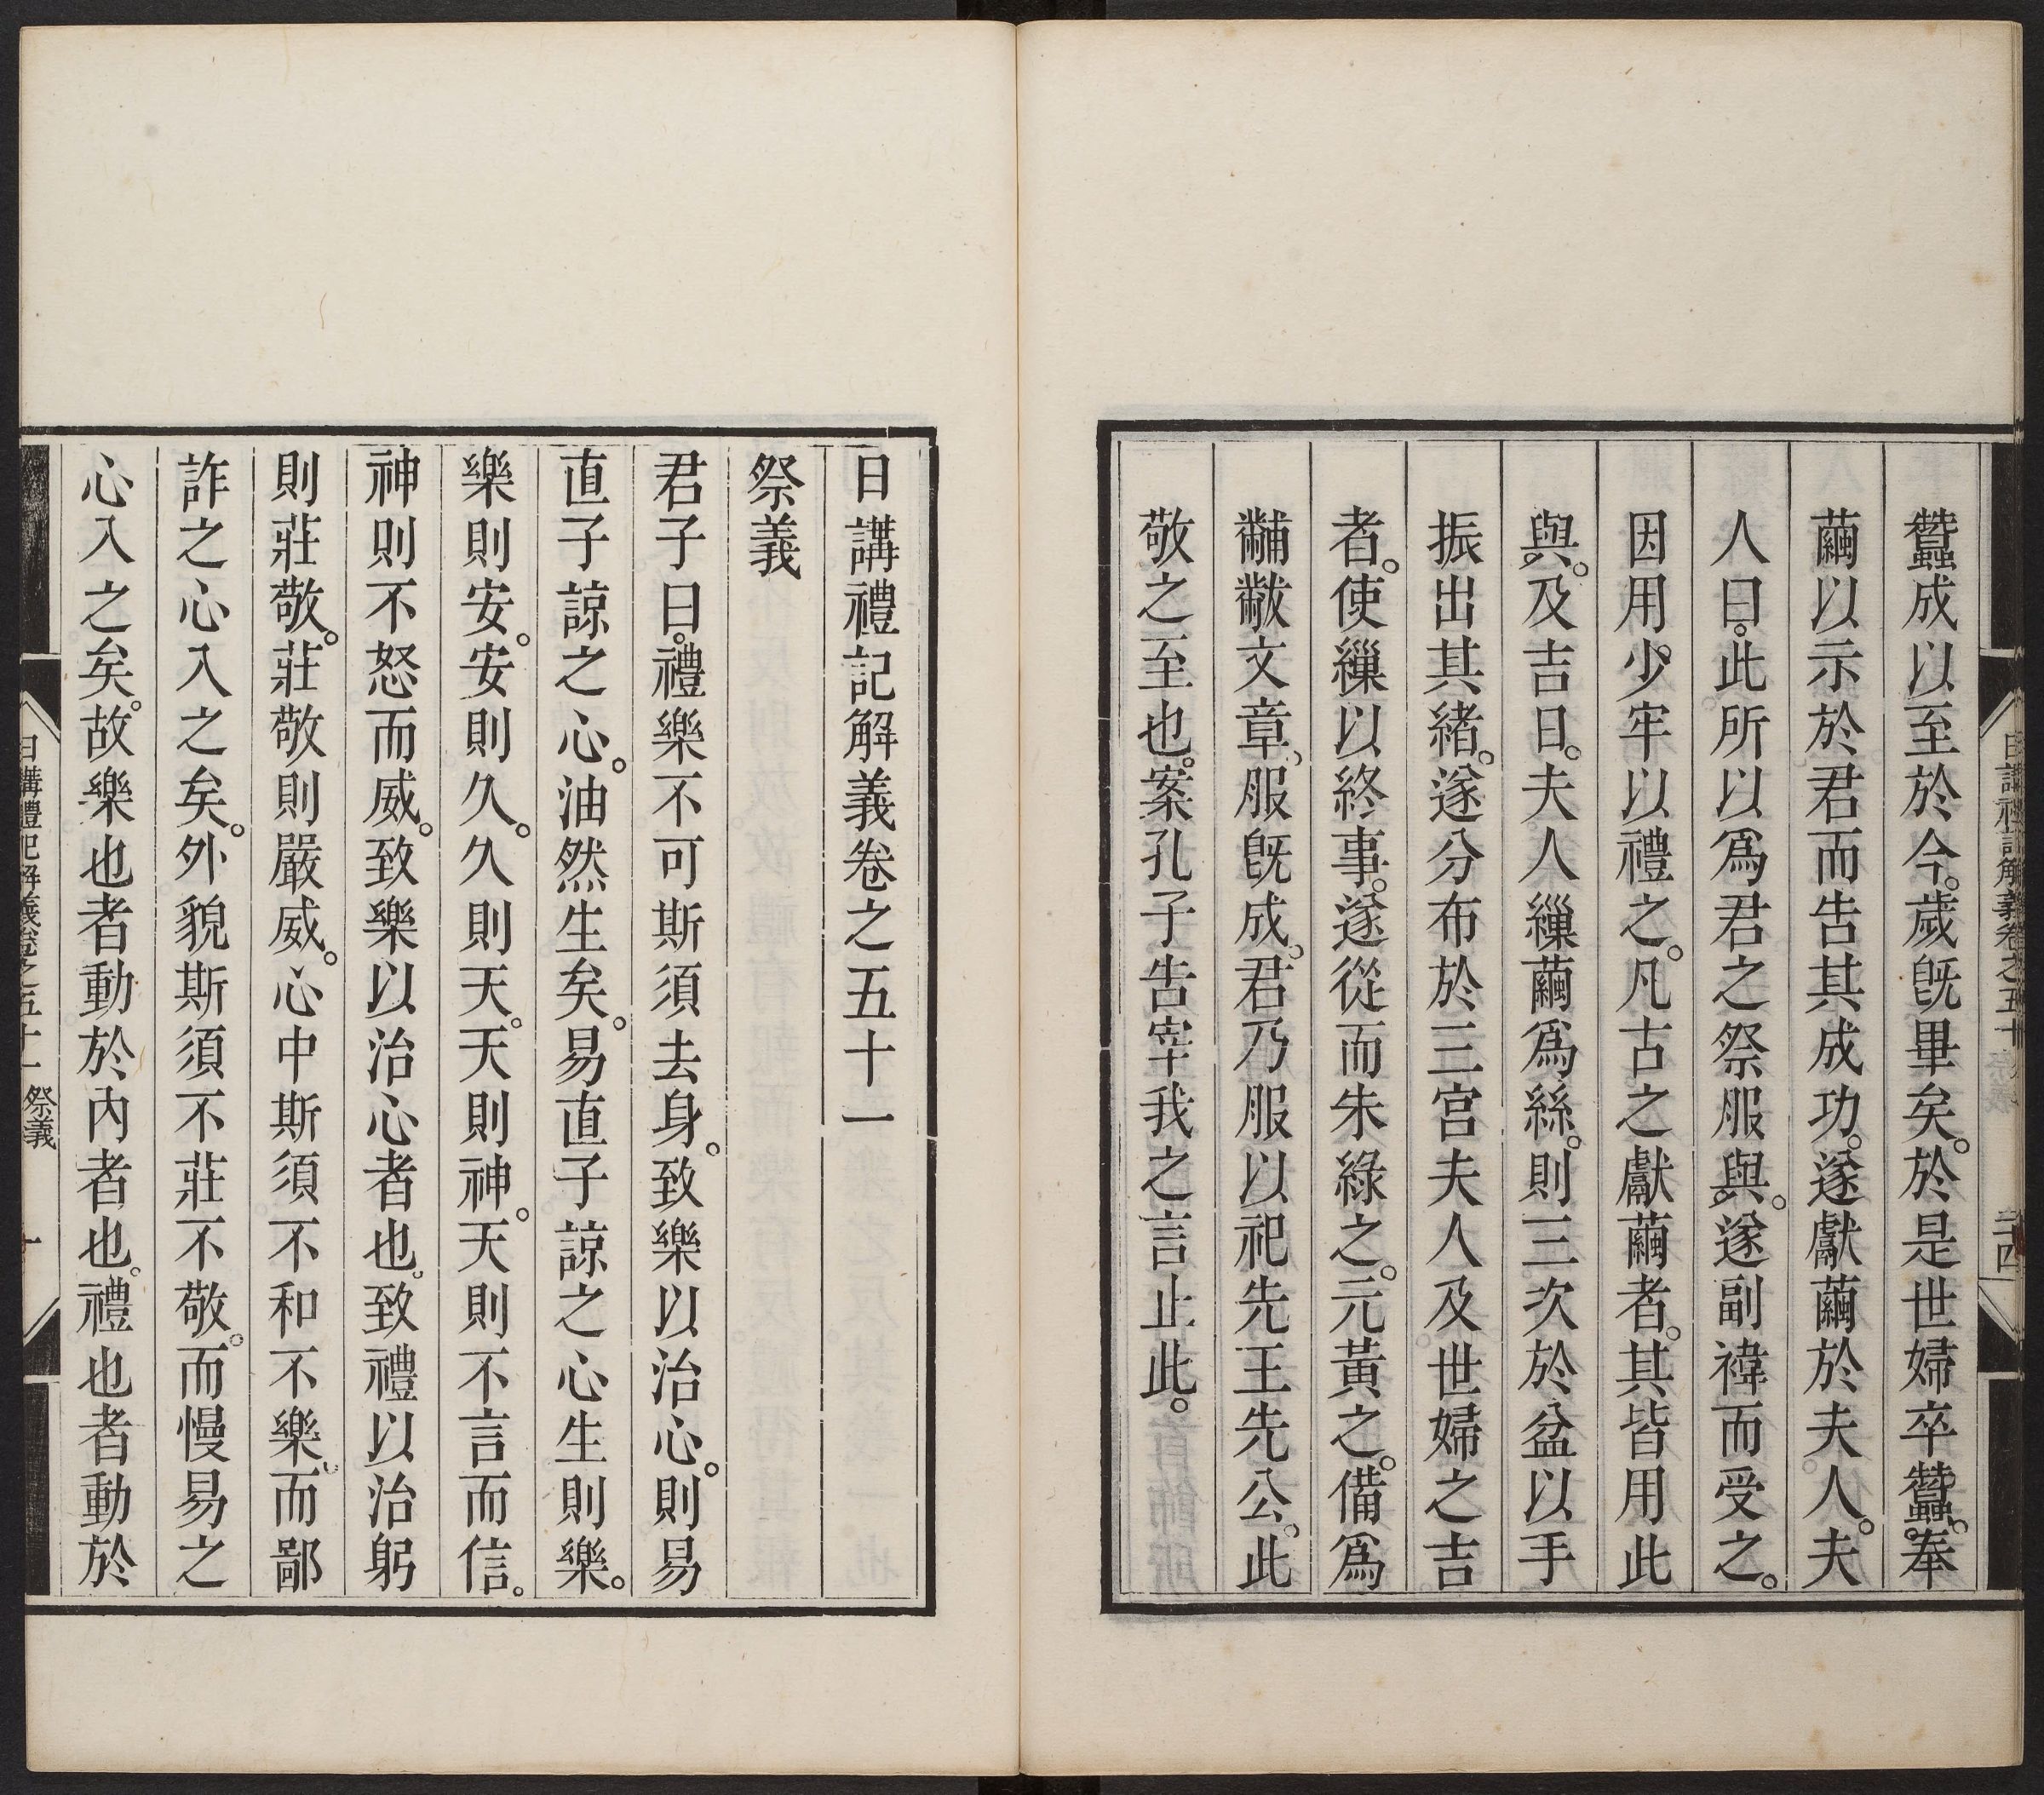 蠶成以至於今。歲旣畢矣。於是世婦卒蠶。奉
繭以示於君而告其成功。遂獻繭於夫人。夫
人曰。此所以爲君之祭服與。遂副褘而受之。
因用少牢以禮之。凡古之獻繭者。其皆用此
與。及吉日。夫人繅繭爲絲。則三次於盆以手
振出其緒。遂分布於三宮夫人及世婦之吉
者。使繅以終事。遂從而朱綠之。元黃之。備爲
黼黻文章。服旣成。君乃服以祀先王先公。此
敬之至也。案孔子告宰我之言止此。
日講禮記解義卷之五十
二十四
日講禮記解義卷之五十一
祭義
君子曰。禮樂不可斯須去身。致樂以治心。則易
直子諒之心。油然生矣。易直子諒之心生則樂。
樂則安。安則久。久則天。天則神。天則不言而信。
神則不怒而威。致樂以治心者也。致禮以治躬
則莊敬。莊敬則嚴威。心中斯須不和不樂。而鄙
詐之心入之矣。外貌斯須不莊不敬。而慢易之
心入之矣。故樂也者動於內者也。禮也者動於
日講禮記解義卷之五十一 祭義 一